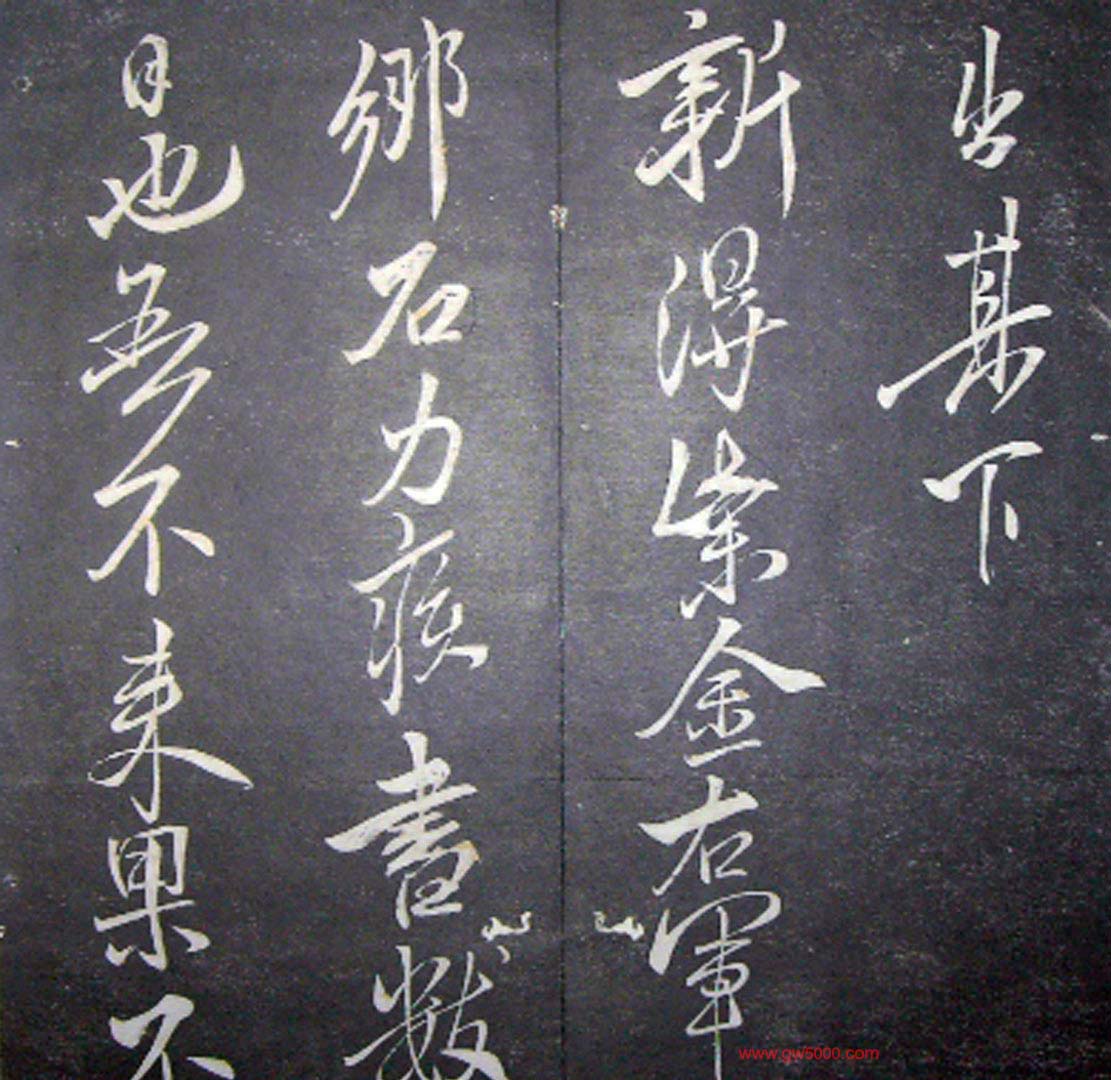 出其下
新得紫金右軍
鄉石力疾書數
日也吾不来果不
www.gw5000.com